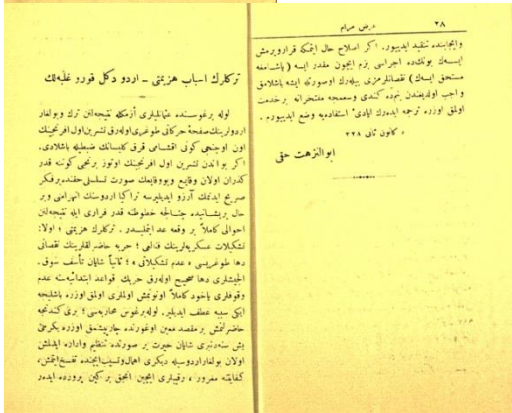 ٢٨
وایجابنده تنقید ایدییور. اكر اصلاح حال ایتمكه قرارویرمش
ایسهك بونكده اجراسی بزم ایچون مقدر ایسه (باشامغه
مستحق ایسهك) نقصانلرمزی بیلهرك اوصورتله ایشه باشلامق
واجب اولدیغندن بنده كندی وسعمجه مفتخرانه برخدمت
اولمق اوزره ترجمه ایدهرك ایادئ استفادهیه وضع ایدییورم.
كانون ثانی ٣٢٨
ابوالنزهت حقی
تركلرك اسباب هزیمتی - اردو دكل قورو غلبهلك
لوله برغوسنده عثمانلیلری ازمكله نتیجهلنن ترك وبولغار
اردولرینك صفحهٔ حركاتی طوغریدن اولهرق تشرین اول افرنجینك
اون اوچنجی كونی اقشامی قرق كلیسانك ضبطیله باشلادی.
اكر بو اندن تشرین اول افرنجینك اوتوز برنجی كوننه قدر
كذران اولان وقایع وبووقایعك صورت تسلسلی حقنده برفكر
صریح ایدنمك آرزو ایدیلیرسه تراكیا اردوسنك انهزامی وبر
حال پریشانیده چتالجه خطوطنه قدر فراری ایله نتیجهلنن
احوالی كاملاً بر وقعه عد ایتملیدر. تركلرك هزیمتی؛ اولا:
تشكیلات عسكریهلرینك فنالغی؛ حربه حاضرلقلرینك نقصانی
دها طوغریسی؛ عدم تشكیلاتی؛ ثانیاً شایان تأسف سوق.
الجیشلری دها صحیح اولهرق حربك قواعد ابتدائیهسنه عدم
وقوفلری یاخود كاملاً اونوتمش اولملری اولمق اوزره باشلیجه
ایكی سببه عطف ایدیلیر. لوله برغوس محاربهسی؛ بری كندنجه
حاضرلنمش برمقصد معین اوغورنده چارپیشمق اوزره یكرمی
بش سنهدنبری شایان حیرت بر صورتده تنظیم واداره ایدلمش
اولان بولغار اردوسیله دیكری اهمال وتسیب ایچنده تفسخ ایتمش،
كفایتنه مغرور، رقیبلری ایچین انجق بر كین پرورده ایدر